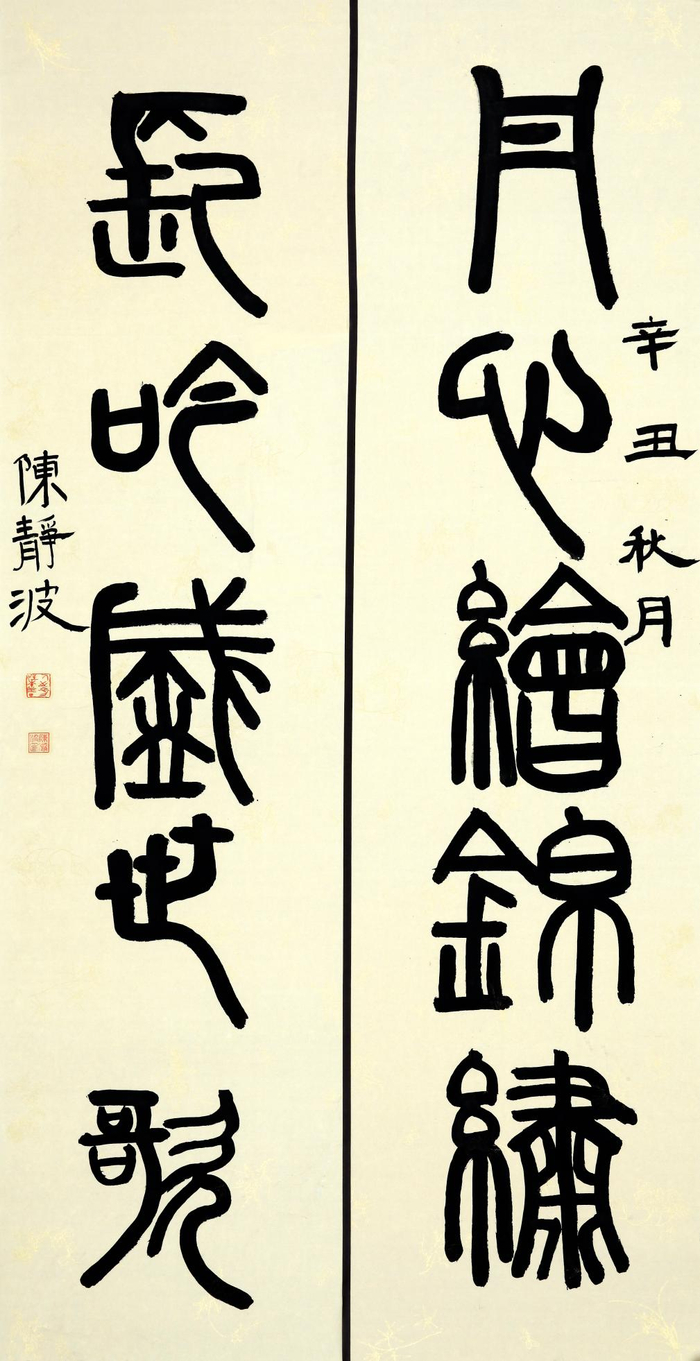 丹心繪錦繡
辛丑秋月
吟盛世歌
陳靜波